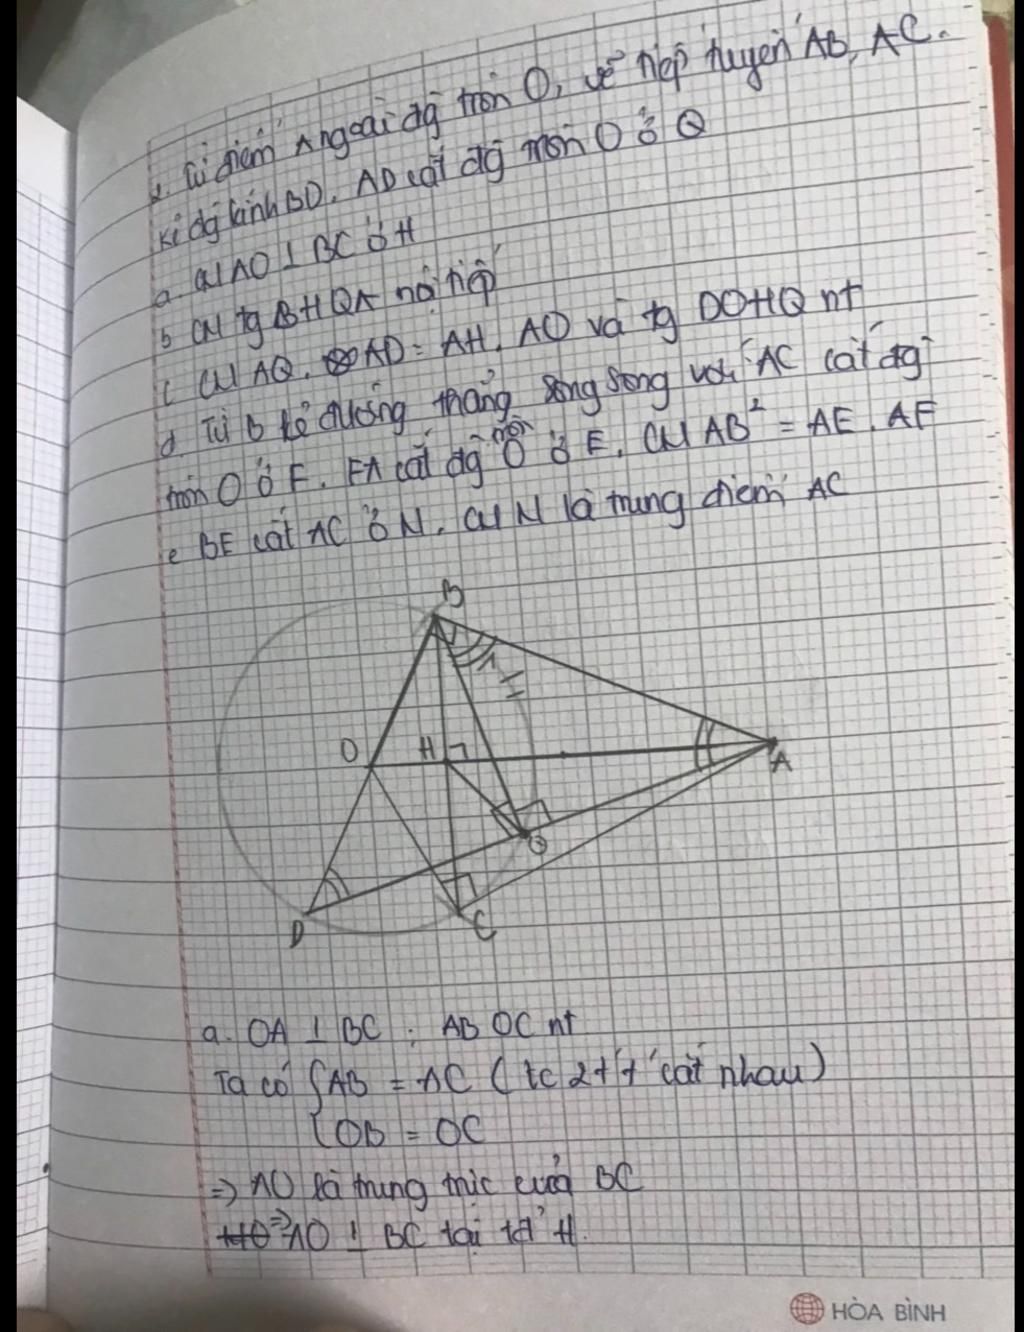 1. Từ điểm A ngoài đg tròn O, vẽ tiếp tuyến AB, AC.
Kẻ đg kính BD. AD cắt đg tròn O ở Q
a. CM AO ⊥ BC ở H
b CM tg BHQA nội tiếp
c CM AQ. AD = AH. AO và tg DOHQ nt
d. Từ B kẻ đường thẳng song song với AC cắt đg
tròn O ở F. FA cắt đg tròn O ở E. CM AB² = AE. AF
e BE cắt AC ở N. CM N là trung điểm AC
B
1
O
H
A
Q
D
C
a. OA ⊥ BC ; AB OC nt
Ta có { AB = AC (tc 2 t t cắt nhau)
OB = OC
=> AO là trung trực của BC
=> AO ⊥ BC tại H.
HÒA BÌNH